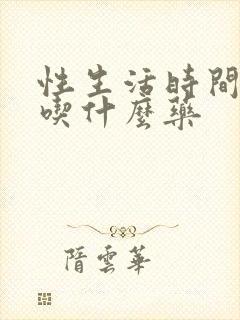 性生活時間
喫什麼藥
隋雲華